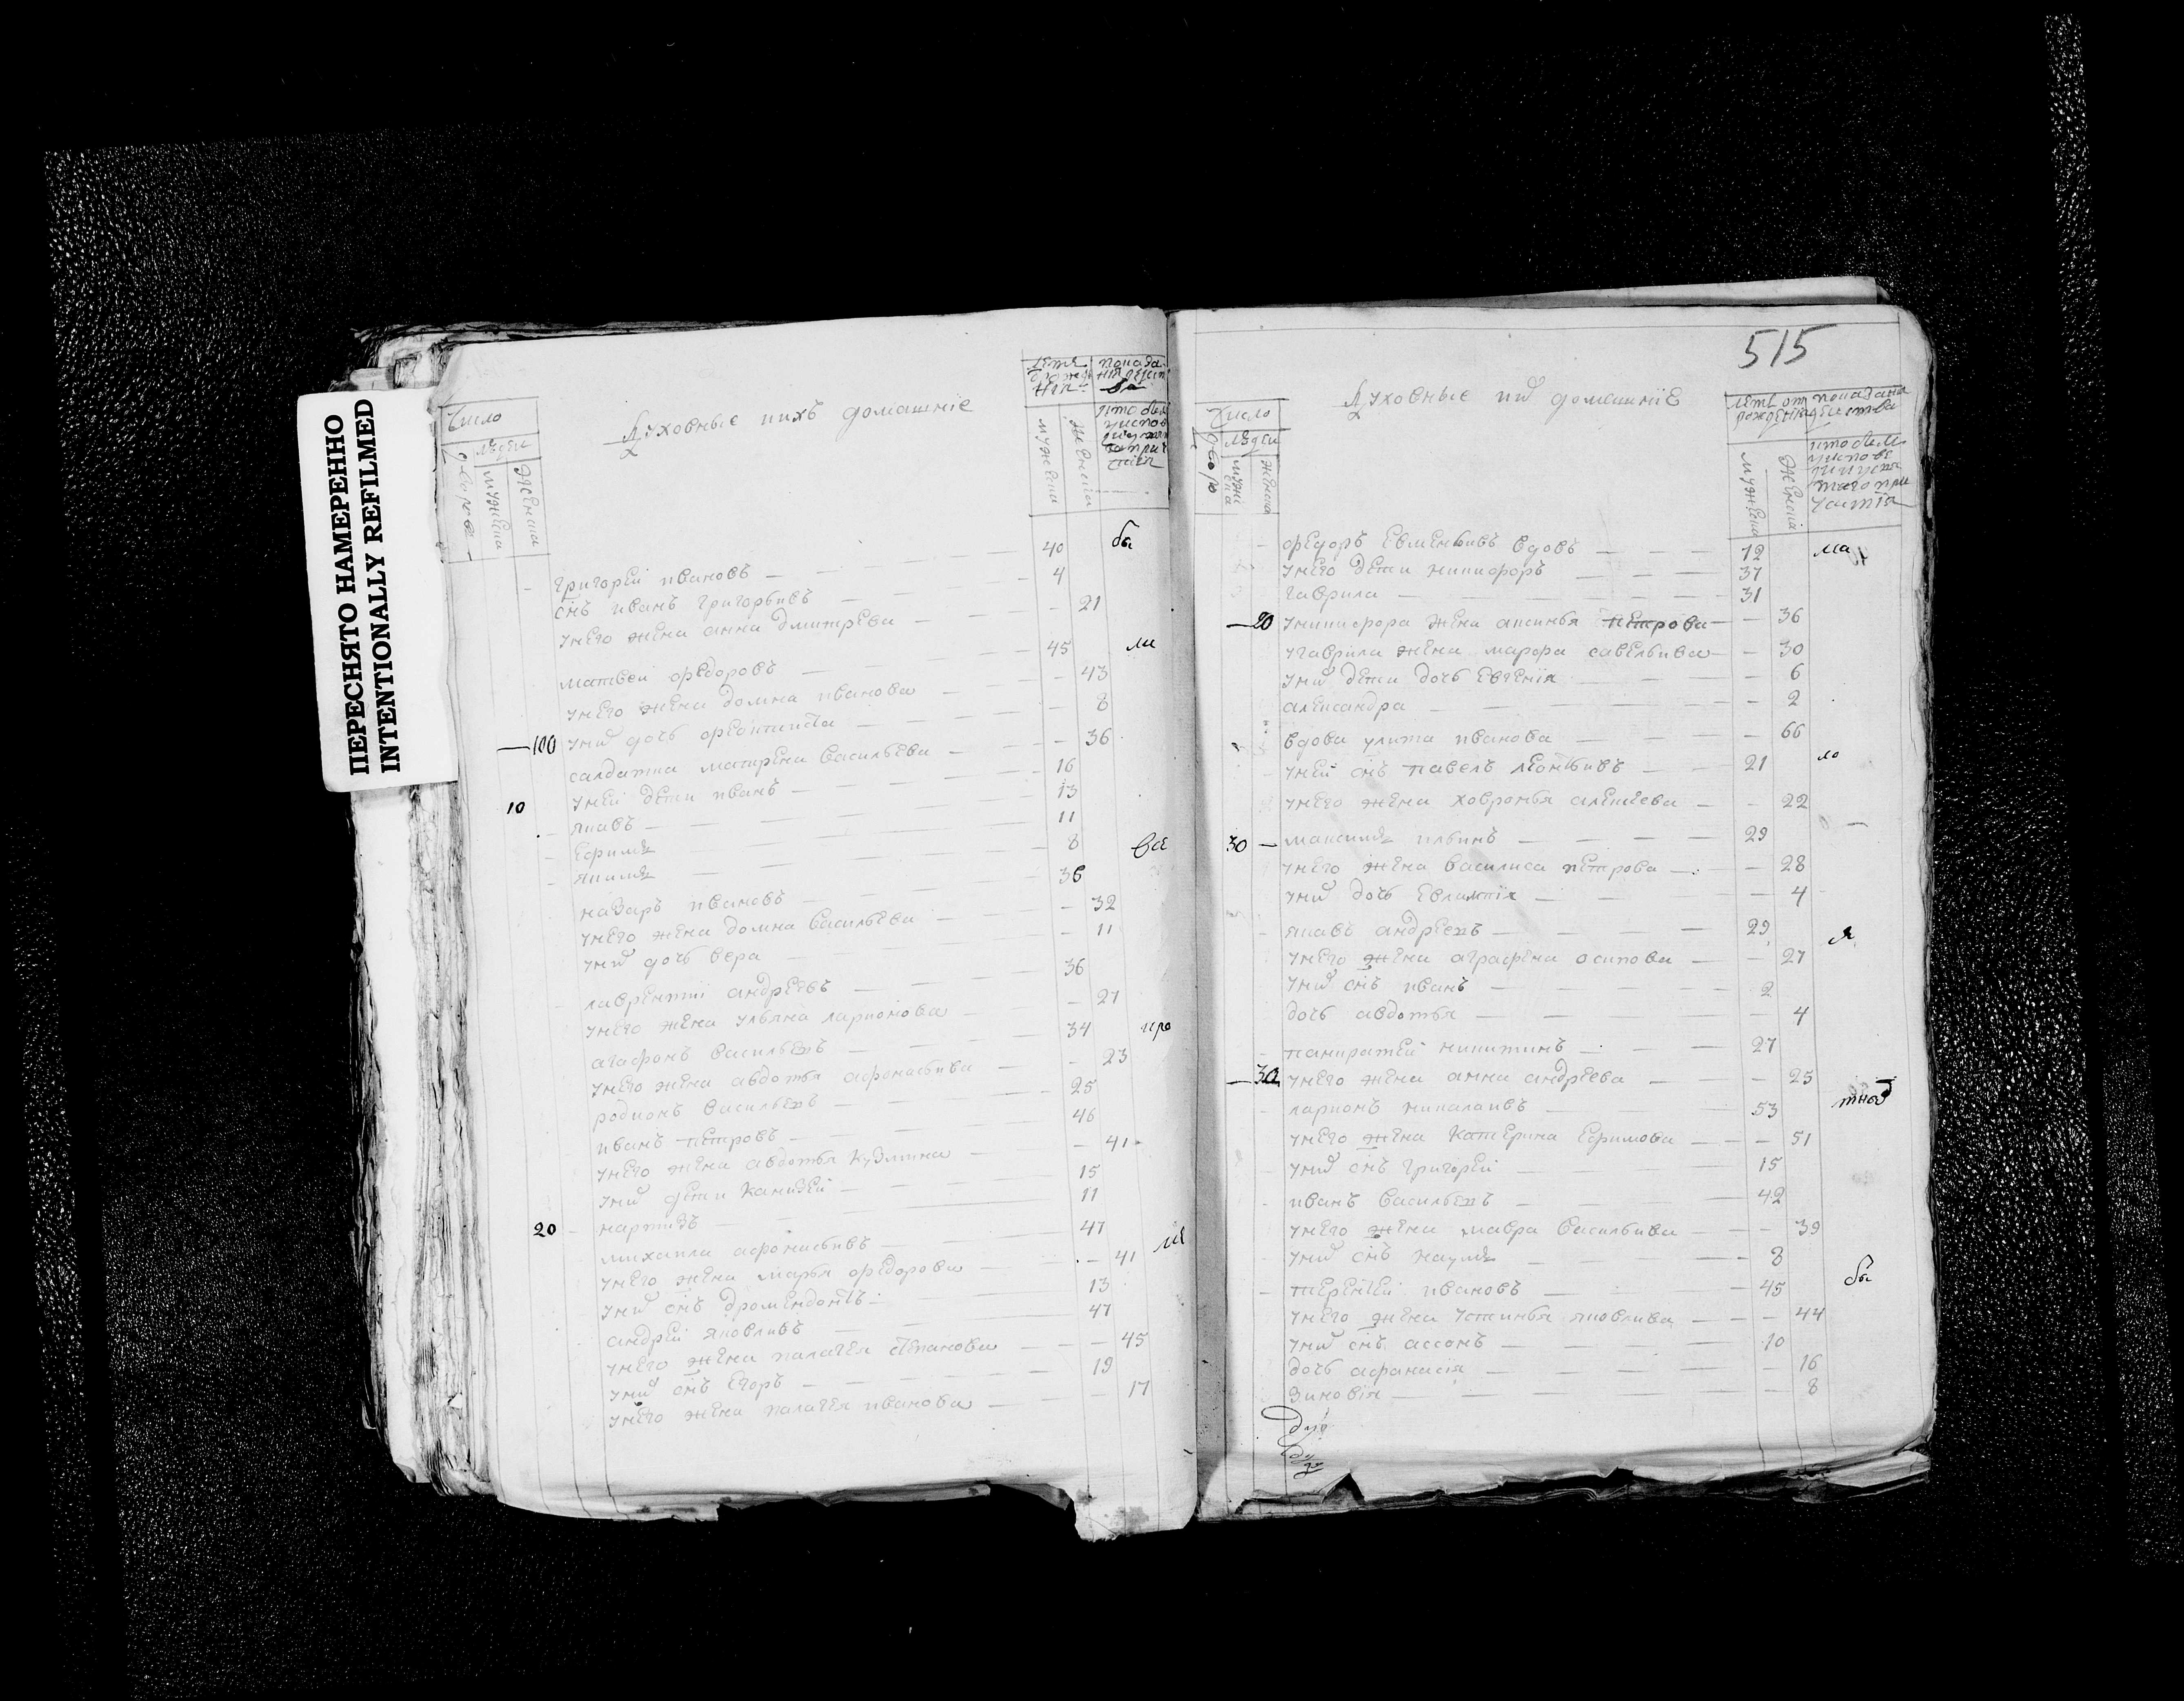 ПЕРЕСНЯТО НАМЕРЕННО
INTENTIONALLY REFILMED
число
людеи
дворовъ
мужеска
женска
Духовные иихъ домашніе
мужеска
женска
григореи ивановъ — 40 бы
снъ иванъ григорьивъ — 4
унего жена анна дмитрева — 21
матвеи федоровъ — 45 ли
унего жена домна иванова — 43
—100 уни дочь феоктиста — 8
салдатка матрена васильева — 36
10 унеи дети иванъ — 16
яковъ — 13
ефимъ — 11
якимъ — 8 все
назаръ ивановъ — 36
унего жена домна васильева — 32
уни дочь вера — 11
лаврентіи андреевъ — 36
унего жена ульяна ларионова — 27
агафонъ васильевъ — 34 про
унего жена авдотья афонасьива — 23
родионъ васильевъ — 25
иванъ петровъ — 46
унего жена авдотья кузмина — 41
уни дети — 15
20 — 11
михаила афонасьивъ — 47
унего жена марья федорова — 41
уни снъ — 13
андреи яковливъ — 47
унего жена палагея степанова — 45
уни снъ егоръ — 19
унего жена палагея иванова — 17
515
Духовные ии домашніе
число
людеи
мужеска
женска
летъ от рождения
мужеска
женска
федоръ евменьивъ вдовъ — 72 ма
унего дети никифоръ — 37
гаврила — 31
—20 уникифора жена аксинья петрова — 36
угаврила жена марфа савельива — 30
уни дети дочь евгенія — 6
александра — 2
вдова улита иванова — 66
унеи снъ павелъ леонтьивъ — 21 ло
унего жена ховронья алексеева — 22
30 — максимъ ильинъ — 29
унего жена василиса петрова — 28
уни дочь евлампія — 4
яковъ андреевъ — 29 я
унего жена аграфена осипова — 27
уни снъ иванъ — 2
дочь авдотья — 4
панкратеи никитинъ — 27
—30 унего жена анна андреева — 25
ларионъ никалаивъ — 53
унего жена катерина ефимова — 51
уни снъ григореи — 15
иванъ васильевъ — 42
унего жена мавра васильива — 39
уни снъ наумъ — 8
терентеи ивановъ — 45 бы
унего жена устинья яковлива — 44
уни снъ ассонъ — 10
дочь афанасія — 16
зиновія — 8